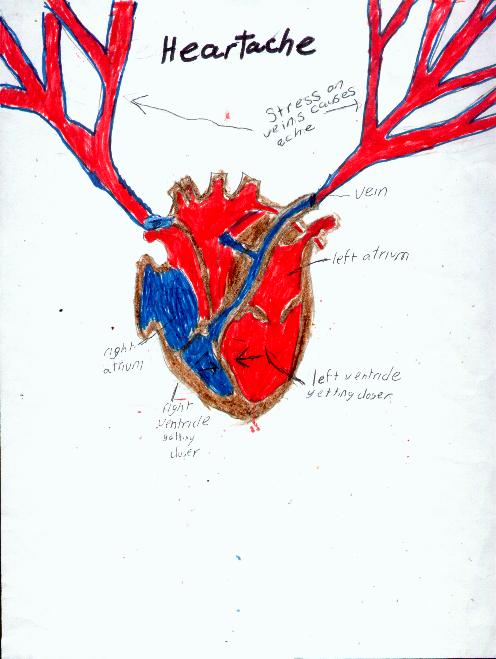 Heartache
Stress on
veins causes
ache
vein
left atrium
right
atrium
left ventricle
getting closer
right
ventricle
getting
closer